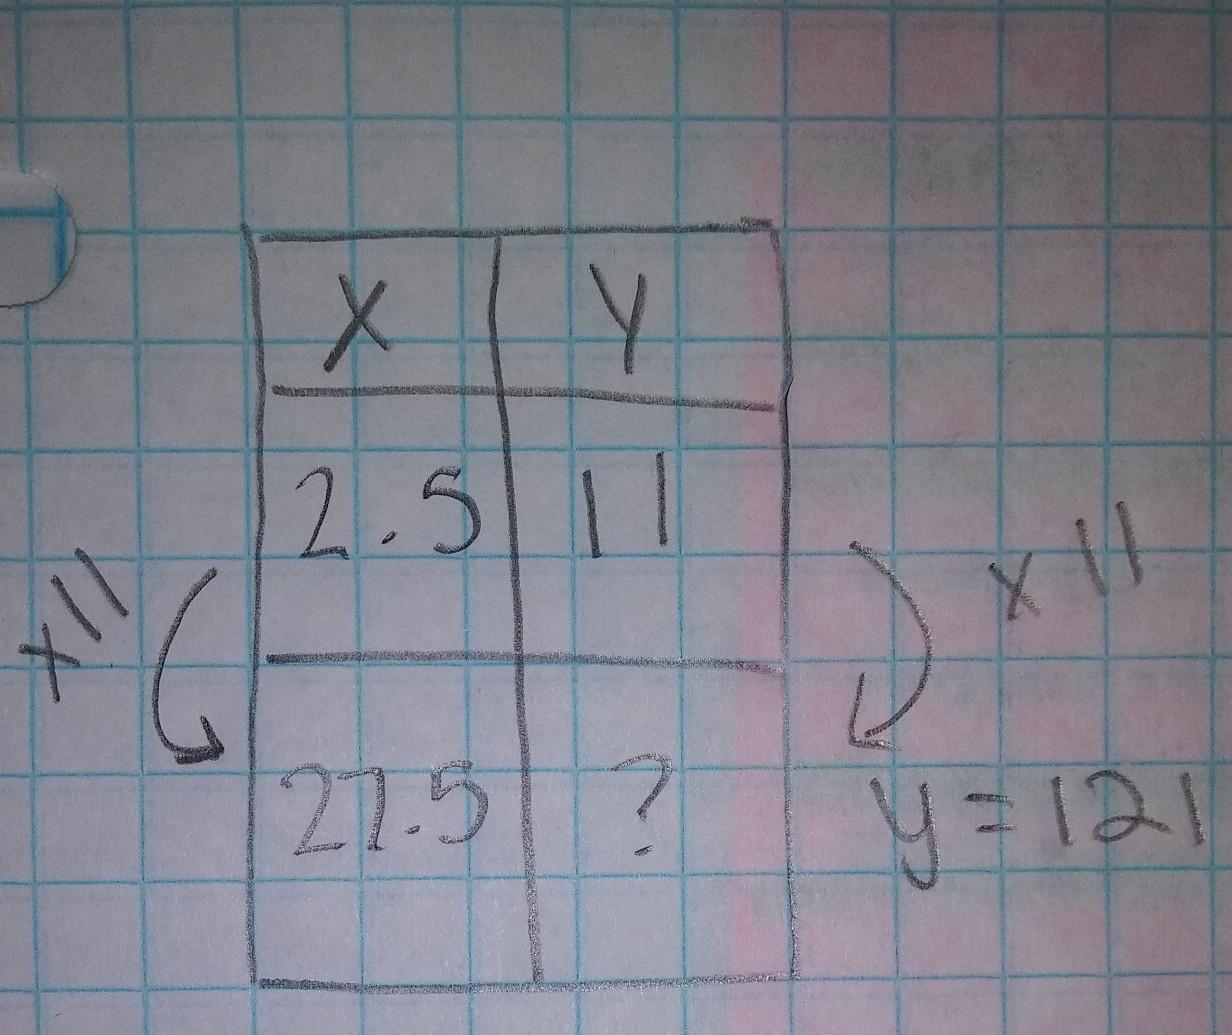 X Y
2.5 11
x11 x11
27.5 ? y=121